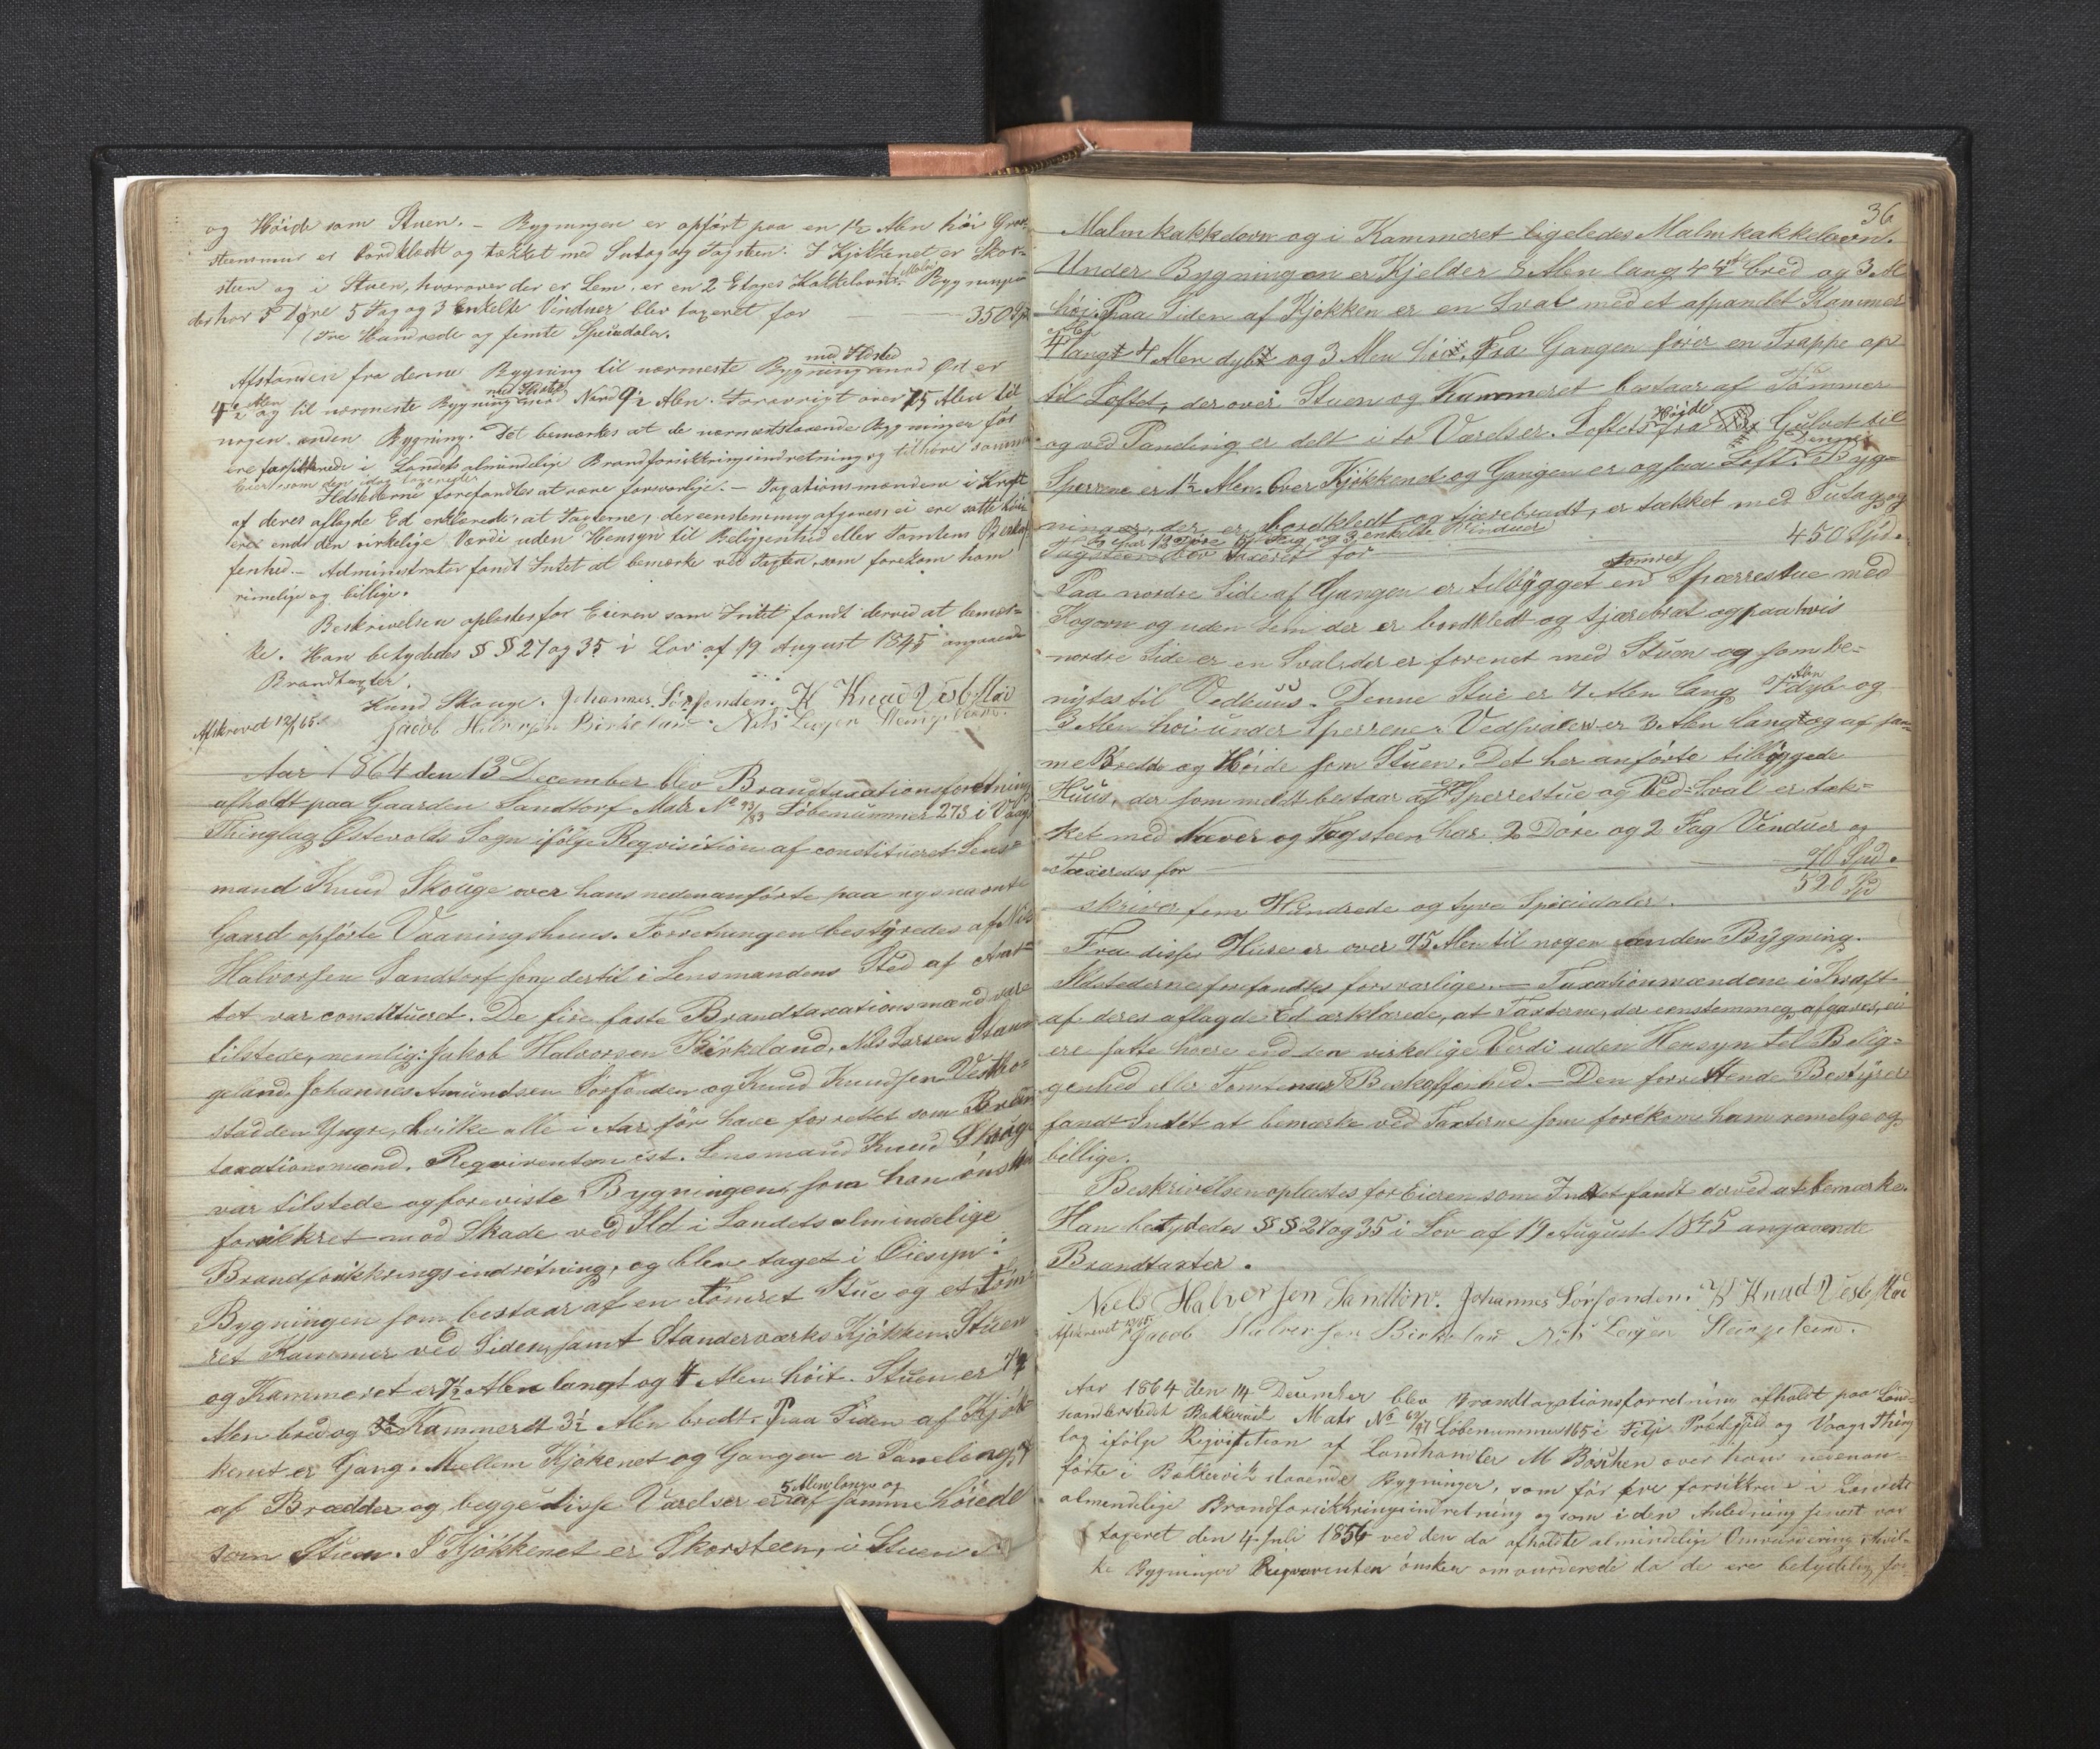 og Høide som Stuen. – Bygningen er opført paa en 1½ Alen høi Graa-
steensmuur er bordklædt og tækket med Sutag og Tagsteen. I Kjøkkenet er Skor-
steen og i Stuen, hvorover der er Lem, er en 2 Etages Kakkelovn af Malm. Bygningen
der har 5 Døre 5 Fag og 3 enkelte Vinduer blev taxeret for — 350 Spd
(Tre Hundrede og femti Speciedaler.
Afstanden fra denne Bygning til nærmeste Bygning med Ildsted mod Øst er
4½ Alen og til nærmeste Bygning med Ildsted mod Nord 9½ Alen. Forøvrigt over 75 Alen til
nogen anden Bygning. Det bemærkes at de nærmeststaaende Bygninger før
ere forsikkrede i Landets almindelige Brandforsikkringsindretning og tilhøre samme
Eier som den idag taxerede
Ildstederne forefandtes at være forsvarlige. – Taxationsmændene i Kraft
af deres aflagde Ed erklærede, at Taxterne, der eenstemmig afgaves, ei ere satte høi-
ere end den virkelige Værdi uden Hensyn til Beliggenhed eller Tomtens Beskaf-
fenhed. – Administrator fandt Intet at bemærke ved Taxten, som forekom ham
rimelig og billige.
Beskrivelsen oplæstes for Eieren som Intet fandt derved at bemær-
ke. Han betydedes §§ 27 og 35 i Lov af 19 August 1845 angaaende
Brandtaxter.
Knud Skouge. Johannes Sørfonden. K Knud Vestestad
Afskrevet 12/1 65. Jacob Halvorsen Birkeland. Nils Larsen
Aar 1864 den 13 December blev Brandtaxationsforretning
afholdt paa Gaarden Sandtorf Matr No 93/83 Løbenummer 273 i Vaags
Thinglag Østevolds Sogn ifølge Reqvisition af constitueret Lens-
mand Knud Skouge over hans nedenanførte paa nysnævnte
Gaard opførte Vaaningshuus. Forretningen bestyredes af Nils
Halvorsen Sandtorf som dertil i Lensmandens Sted af Amt-
tet var constitueret. De fire faste Brandtaxationsmænd vare
tilstede, nemlig: Jakob Halvorsen Birkeland, Nils Larsen Stan-
geland, Johannes Amundsen Sørfonden og Knud Knudsen Vestho-
stad den Yngre, hvilke alle i Aar før have forrettet som Brand-
taxationsmænd. Reqvirenten cst. Lensmand Knud Skouge
var tilstede og foreviste Bygningen, som han ønsker
forsikkret mod Skade ved Ild i Landets almindelige
Brandforsikkringsindretning, og blev taget i Øiesyn:
Bygningen som bestaar af en Tømret Stue og et tøm-
ret Kammer ved Siden, samt Standerværks Kjøkken. Stuen
og Kammeret er 7½ Alen langt og 4 Alen høit. Stuen er 7½
Alen bred og Kammerdt 3½ Alen bredt. Paa Siden af Kjøk-
kenet er Gang. Mellem Kjøkenet og Gangen er Paneling
af Brædder og begge disse Værelser er 5 Alen lange og af samme Høiede
som Stuen. I Kjøkkenet er Skorsteen, i Stuen
36
Malmkakkelovn og i Kammeret ligeledes Malmkakkelovn.
Under Bygningen er Kjelder 8 Alen lang 4½ bred og 3 Al
høi. Paa Siden af Kjøkken er en Sval med et afpandet Kammer
4 langt 4 Alen dybt og 3 Alen høi. Fra Gangen fører en Trappe op
til Loftet, der over Stuen og Kammeret bestaar af Tømmer
og ved Panding er delt i to Værelser. Loftets Høide fra Gulvet til
Sperrene er 1½ Alen. Over Kjøkkenet og Gangen er ogsaa Loft. Denne Byg-
ningen, der er bordkledt og tjærebradt, er tækket med Sutag og
Tagsteen har Døre Fag og 3 enkelte Vinduer
blev taxeret for — 450 Spd.
Paa nordre Side af Gangen er tilbygget en tømret Sperrestue med
Kogovn og uden Lem der er bordkledt og tjærebrat og paa hvis
nordre Side er en Sval, der er forenet med Stuen og som be-
nyttes til Vedhuus. Denne Stue er 7 Alen lang 7 Alen dyb og
3 Alen høi under Sperrene. Vedsvalen er 3 Alen lang og af sam-
me Bredde og Høide som Stuen. Det her anførte tilbyggede
Huus, der som meldt bestaar af en Sperrestue og Ved-Sval er tæk-
ket med Næver og Tagsteen har 2 Døre og 2 Fag Vinduer og
Taxeredes for — 70 Spd.
520 Spd
skriver fem Hundrede og tyve Speciedaler.
Fra disse Huse er over 75 Alen til nogen anden Bygning.
Ildstederne forefandtes forsvarlige. – Taxationmændene i Kraft
af deres aflagde Ed erklærede, at Taxterne, der eenstemmeg afgaves, ei
ere satte høere end den virkelige Verdi uden Hensyn tel Belig-
genhed eller Tomternes Beskaffenhed. – Den forrettende Bestyrer
fandt Intet at bemærke ved Taxterne som forekom ham remelge og
billige.
Beskrivelsen oplæstes for Eieren som Intet fandt derved at bemærke.
Han betydedes §§ 27 og 35 i Lov af 19 August 1845 angaaende
Brandtaxter.
Niels Halversen Sandtorv. Johannes Sørfonden. K Knud Vestestad
Afskrevet Jacob Halvorsen Birkeland Nils Larsen Stangeland.
Aar 1864 den 14 December blev Brandtaxationsforretning afholdt paa Land-
handlerstedet Bækkervik Matr No 69/91 Løbenummer 165 i Fitje Prestegjeld og Vaags Thing-
lag ifølge Reqvisition af Landhandler M Böschen over hans nedenan-
førte i Bækkervik staaende Bygninger, som før ere forsikkrede i Landets
almendelige Brandforsikkringsindretning og som i den Anledning senest var
taxeret den 4 Juli 1856 ved den da afholdte almindelig Omvurdering, hvil-
ke Bygninger Reqvirenten ønsker omvurderede da de ere betydelig for-